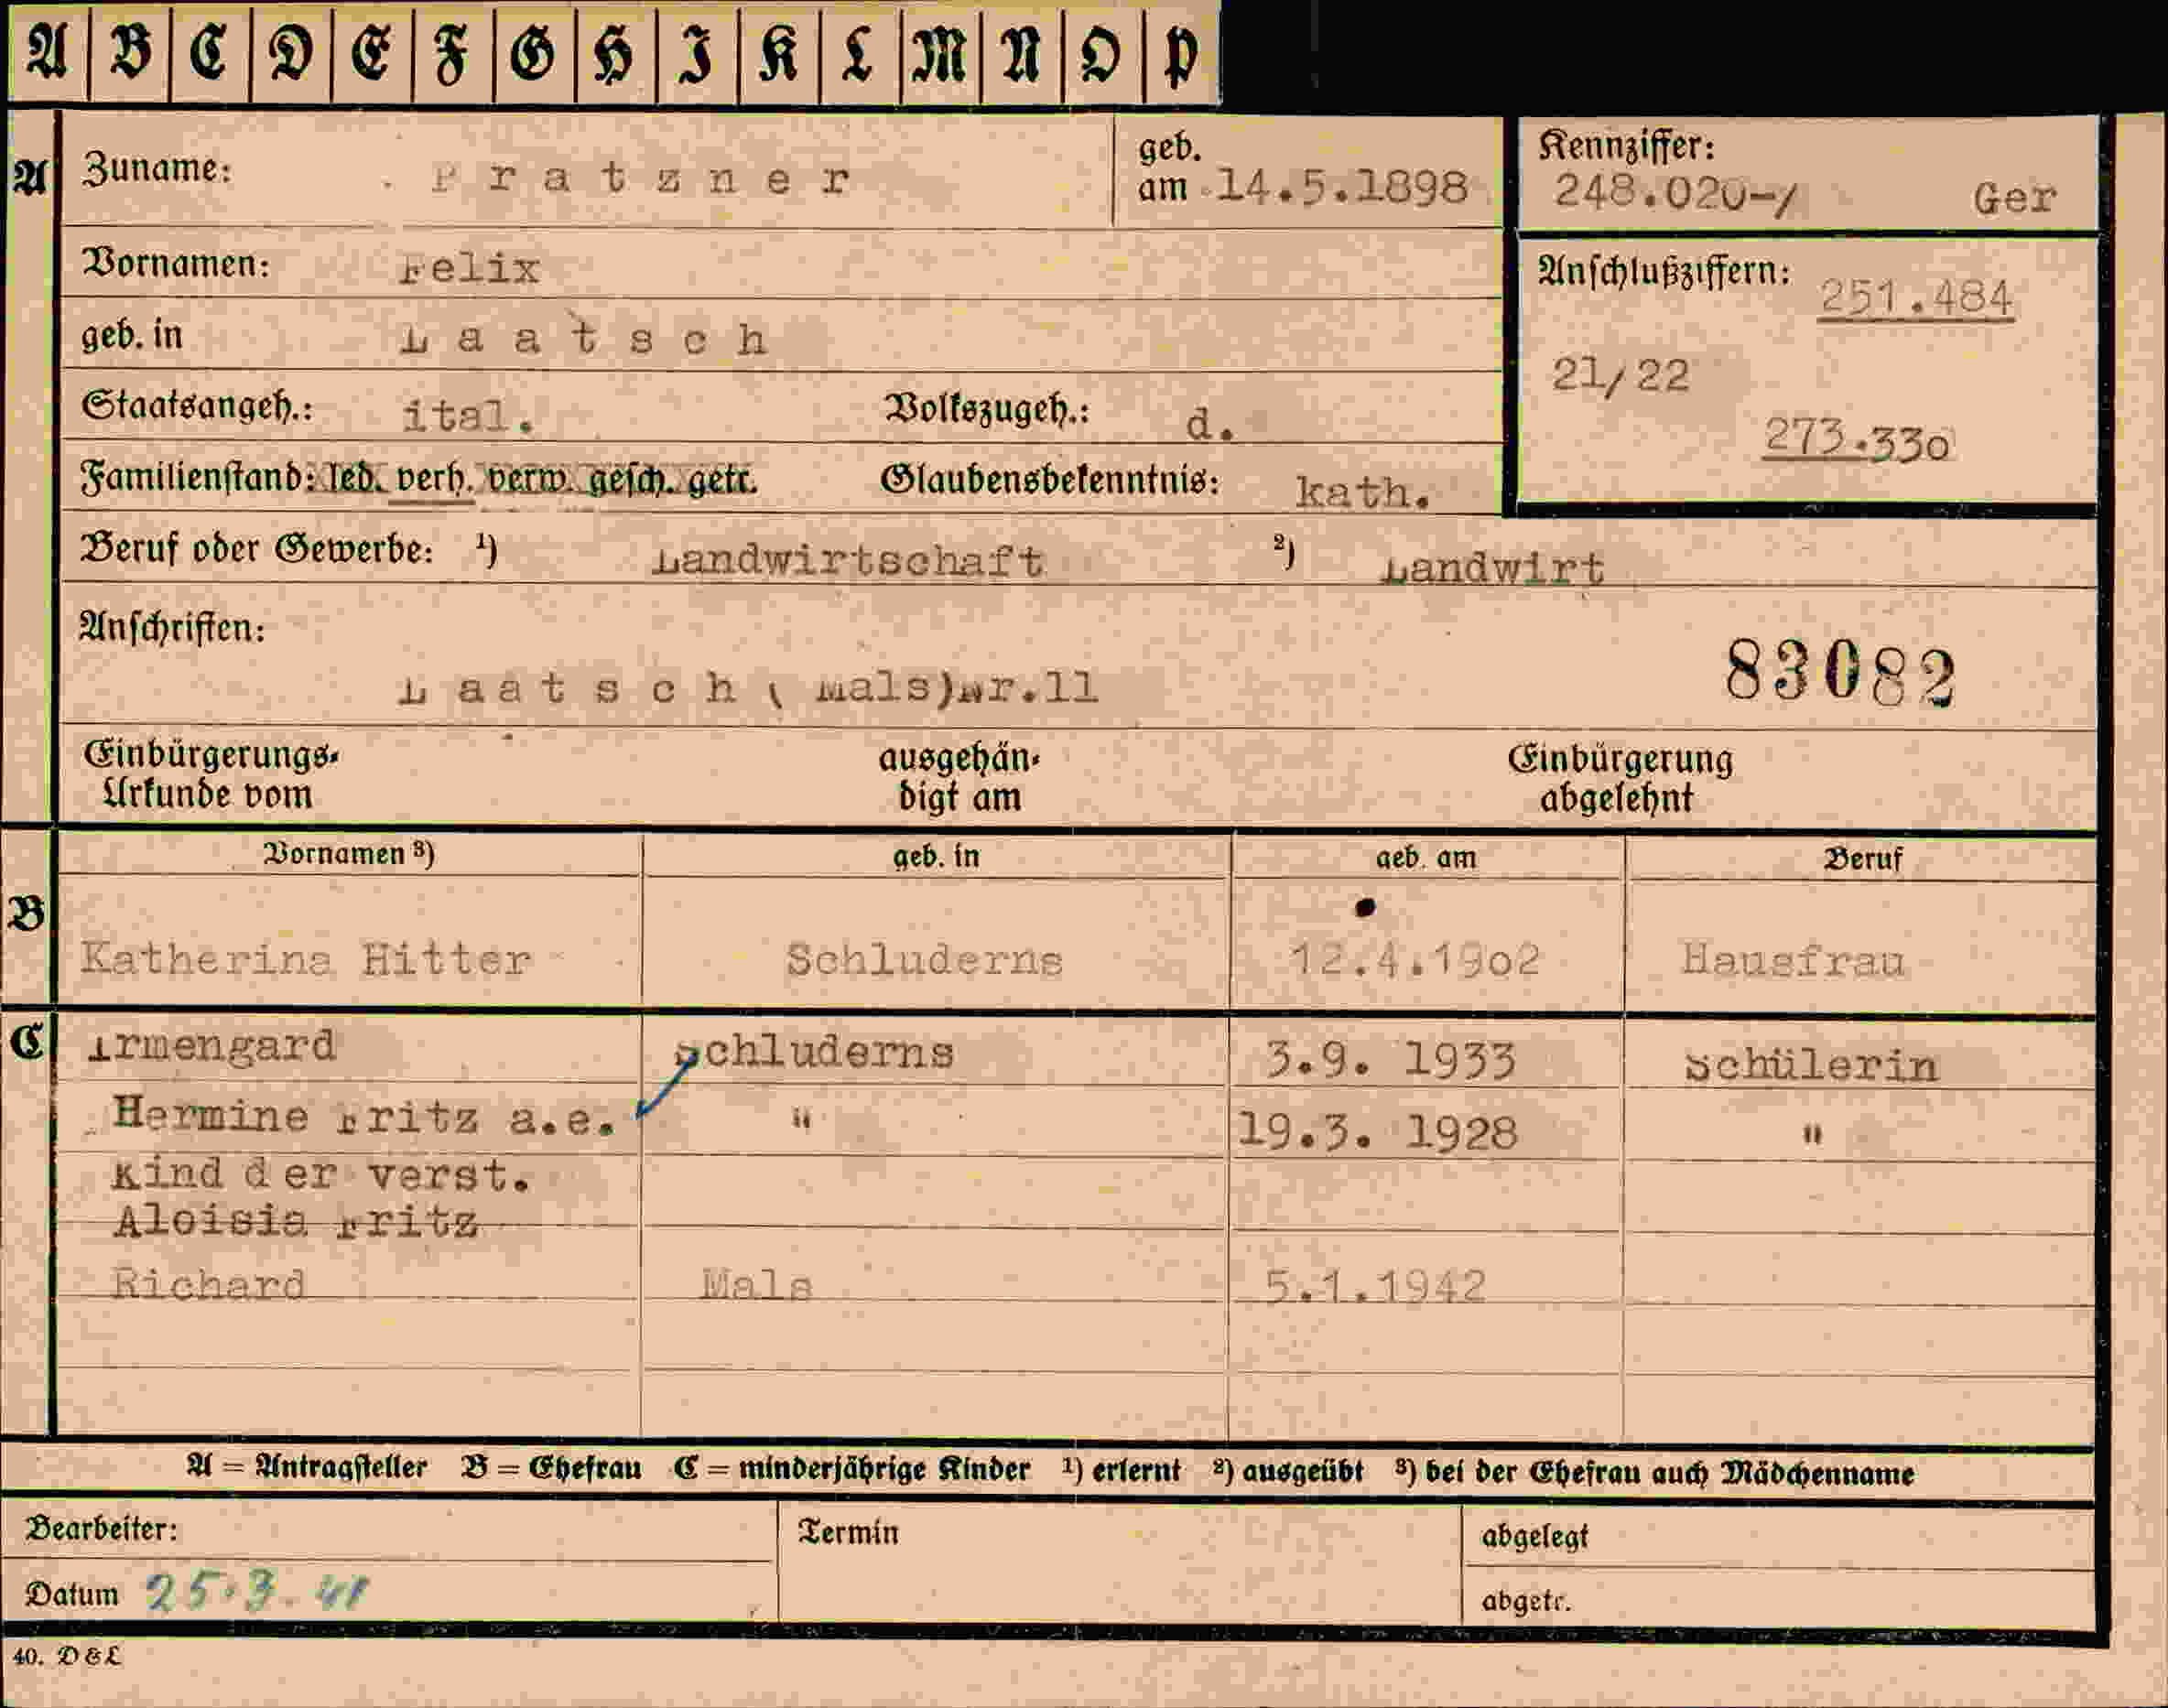 A B C D E F G H I K L M N O P
A Zuname: Pratzner geb. am 14.5.1898
Kennziffer: 248.020-/ Ger
Vornamen: Felix
Anschlußziffern: 251.484
geb. in Laatsch
21/22
Staatsangeh.: ital. Volkszugeh.: d.
273.330
Familienstand: led. verh. verw. gesch. getr. Glaubensbekenntnis: kath.
Beruf oder Gewerbe: ¹) Landwirtschaft ²) Landwirt
Anschriften:
83082
Laatsch ( Mals)Nr.11
Einbürgerungs- ausgehän- Einbürgerung
Urkunde vom digt am abgelehnt
Vornamen ³) geb. in geb. am Beruf
B
Katherina Hitter Schluderns 12.4.1902 Hausfrau
C Irmengard Schluderns 3.9. 1933 Schülerin
Hermine Fritz a.e. " 19.3. 1928 "
Kind der verst.
Aloisia Fritz
Richard Mals 5.1.1942
A = Antragsteller B = Ehefrau C = minderjährige Kinder ¹) erlernt ²) ausgeübt ³) bei der Ehefrau auch Mädchenname
Bearbeiter: Termin abgelegt
Datum 25.3.41 abgetr.
40. D & L